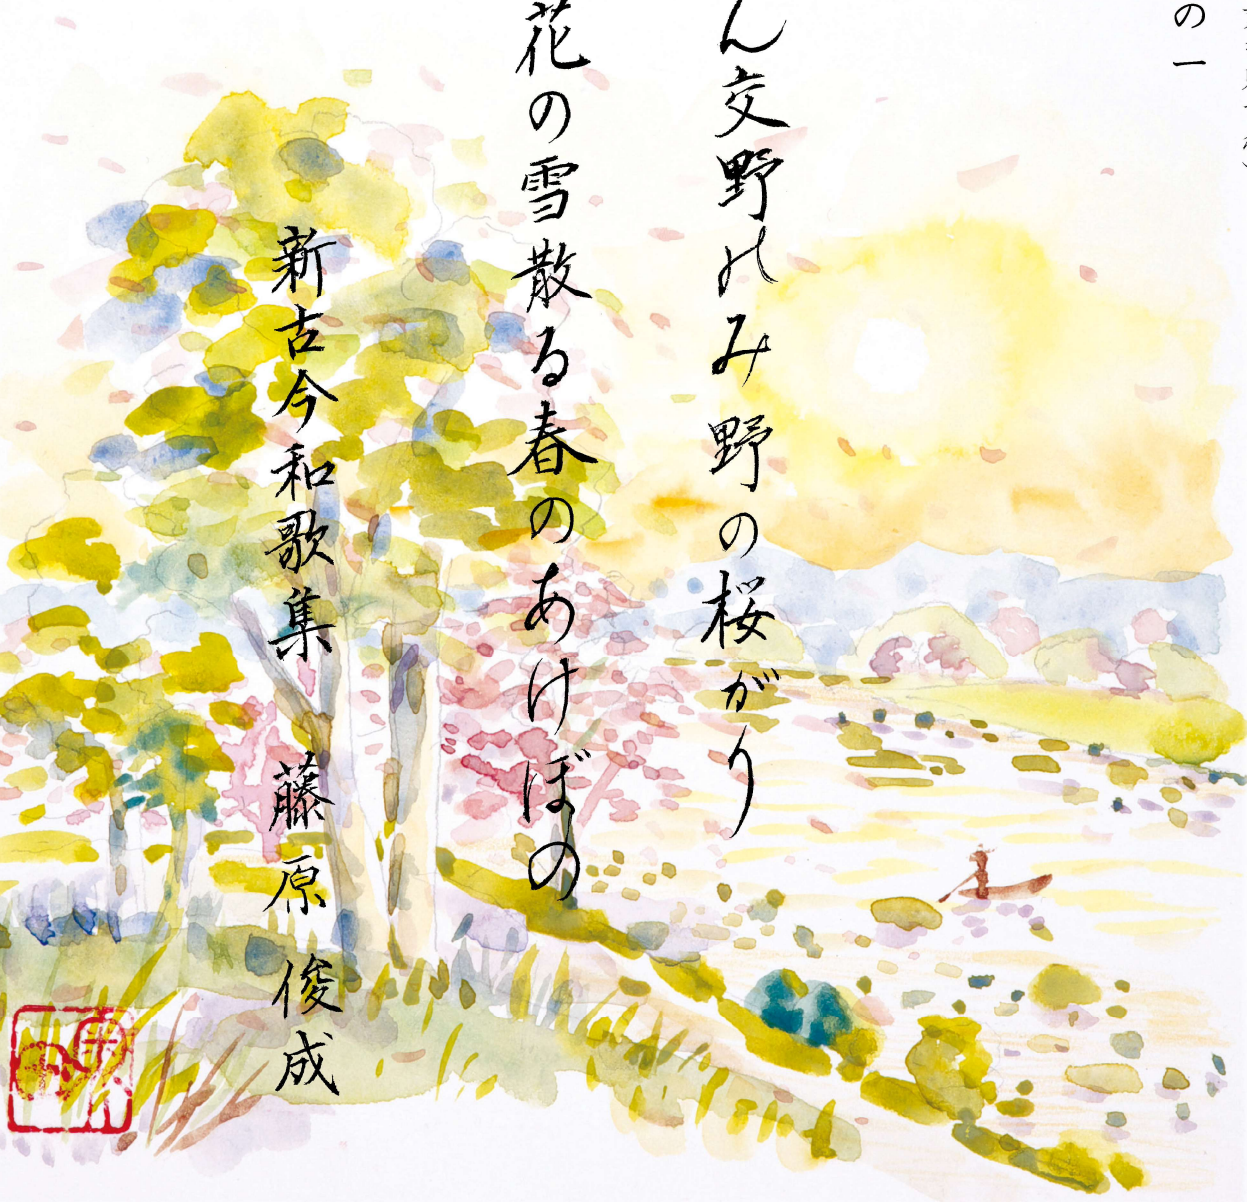 の一
ん交野のみ野の桜がり
花の雪散る春のあけぼの
新古今和歌集 藤原俊成